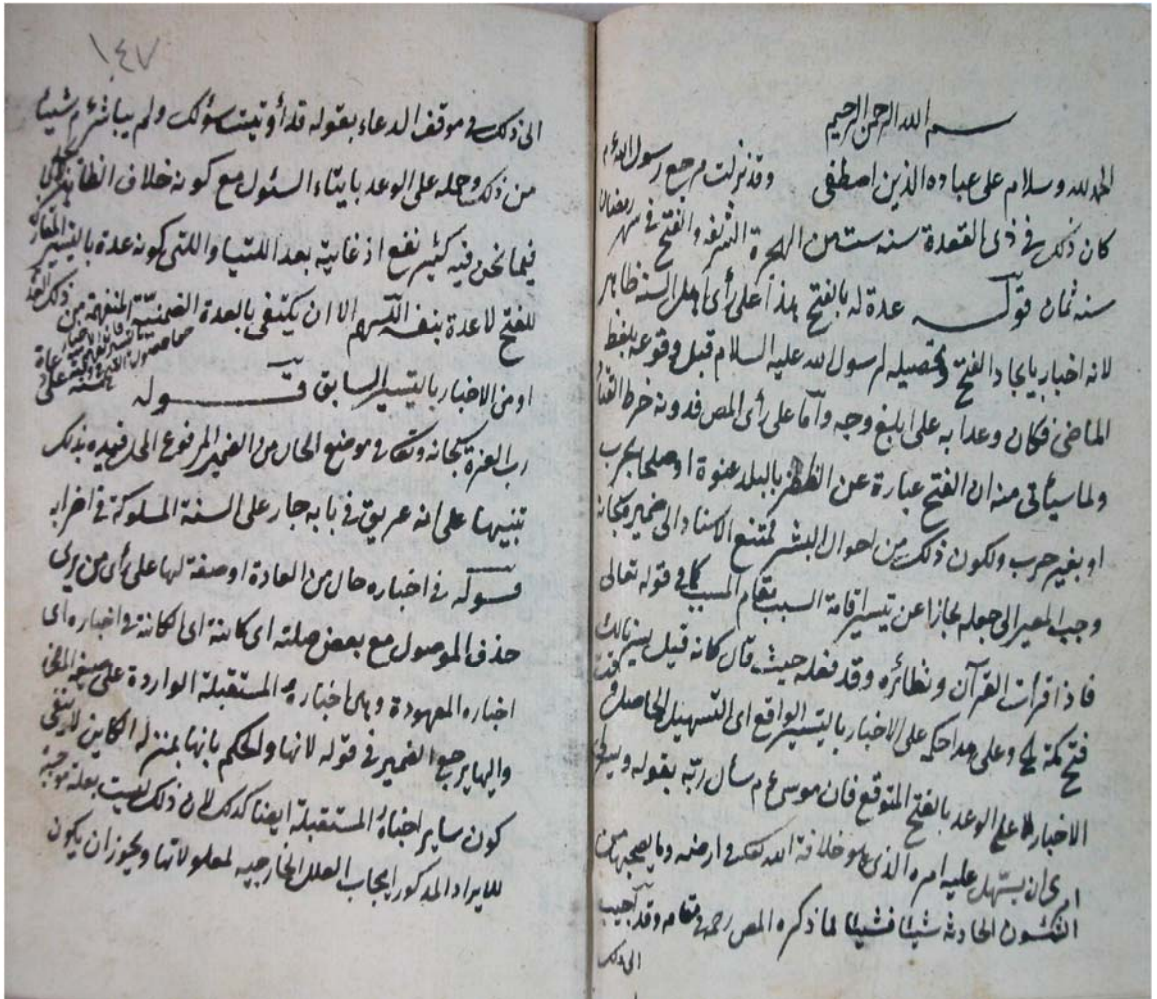 بسم الله الرحمن الرحيم
الحمد لله وسلام على عباده الذين اصطفى وقد نزلت مرجع رسول الله م
كان ذلك في ذي القعدة سنة ست من الهجرة الشريفة والفتح في شهر رمضان
سنة ثمان قوله عدة له بالفتح هذا على رأى اهل السنة ظاهر
لانه اخبار بايجاد الفتح وتحصيله لرسول الله عليه السلام قبل وقوعه بلفظ
الماضى فكان وعدا به على ابلغ وجه وأما على رأى المص فدونه خرط القتاد
ولما سيأتى منه ان الفتح عبارة عن الظفر بالبلد عنوة او صلحا بحرب
او بغير حرب ولكون ذلك من احوال البشر يمتنع الاسناد الى ضميره سبحانه
وجب المصير الى جعله مجازا عن تيسير اقامة السبب مقام المسبب كما في قوله تعالى
فاذا قرأت القرآن ونظائره وقد فعله حيث قال كانه قيل يسرنا لك
فتح مكة وعلى هذا حكمه على الاخبار بالتيسير الواقع اى التسهيل الحاصل في
الاخبار على الوعد بالفتح المتوقع فان موسى عم سأل ربه بقوله ويسر لى
امرى ان يسهل عليه امره الذى هو خلافة الله تعالى في ارضه وما يصحبها من
الشئون الحادثة شيئا فشيئا لما ذكره المص رحمه في مقامه وقد اجيب
الى ذلك
١٤٧
الى ذلك في موقف الدعاء بقوله قد أوتيت سؤلك ولم يباشر م شيئا
من ذلك وحمله على الوعد بايتاء السئول مع كونه خلاف الظاهر
فيما نحن فيه كثير نفع اذ غايته بعد اللتيا واللتى كونه عدة بالتيسير المقارن
للفتح لا عدة بنفسه اللهم الا ان يكتفى بالعدة الضمنية المنفهمة من ذلك
او من الاخبار بالتيسير السابق قوله
رب العزة سبحانه وتعالى في موضع الحال من الضمير المرفوع المحل قيده بذلك
تنبيها على انه عريق في بابه جار على السنة المسلوكة في اخبار
قوله في اخباره حال من العادة او صفة لها على رأى من يرى
حذف الموصول مع بعض صلته اى كائنة اى الكائنة في اخباره اى
اخباره المعهودة وهى اخباره المستقبلة الواردة على صيغة الماضى
واليها يرجع الضمير في قوله لانها والحكم بانها بمنزلة الكاين لا ينفى
كون ساير اخباره المستقبلة ايضا كذلك لان ذلك ليست بعلة موجبة
للايراد المذكور ايجاب العلل الخارجية لمعلولاتها ويجوز ان يكون